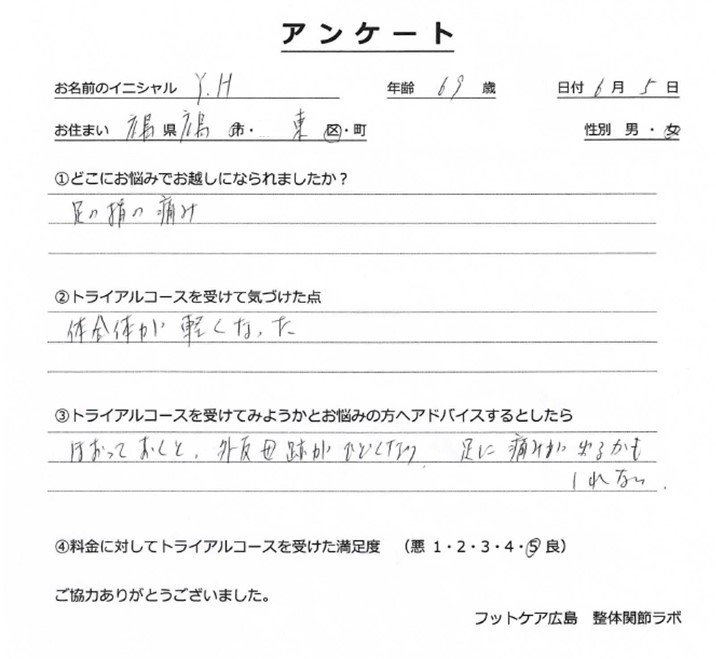 アンケート
お名前のイニシャル Y.H 年齢 69 歳 日付 6 月 5 日
お住まい 広島 県 広島 市・ 東 区・町 性別 男・女
①どこにお悩みでお越しになられましたか？
足の指の痛み
②トライアルコースを受けて気づけた点
体全体が軽くなった
③トライアルコースを受けてみようかとお悩みの方へアドバイスするとしたら
ほおっておくと、外反母跡がひどくなり、足に痛みが出るかも
しれない.
④料金に対してトライアルコースを受けた満足度 （悪 1・2・3・4・5 良）
ご協力ありがとうございました。
フットケア広島 整体関節ラボ